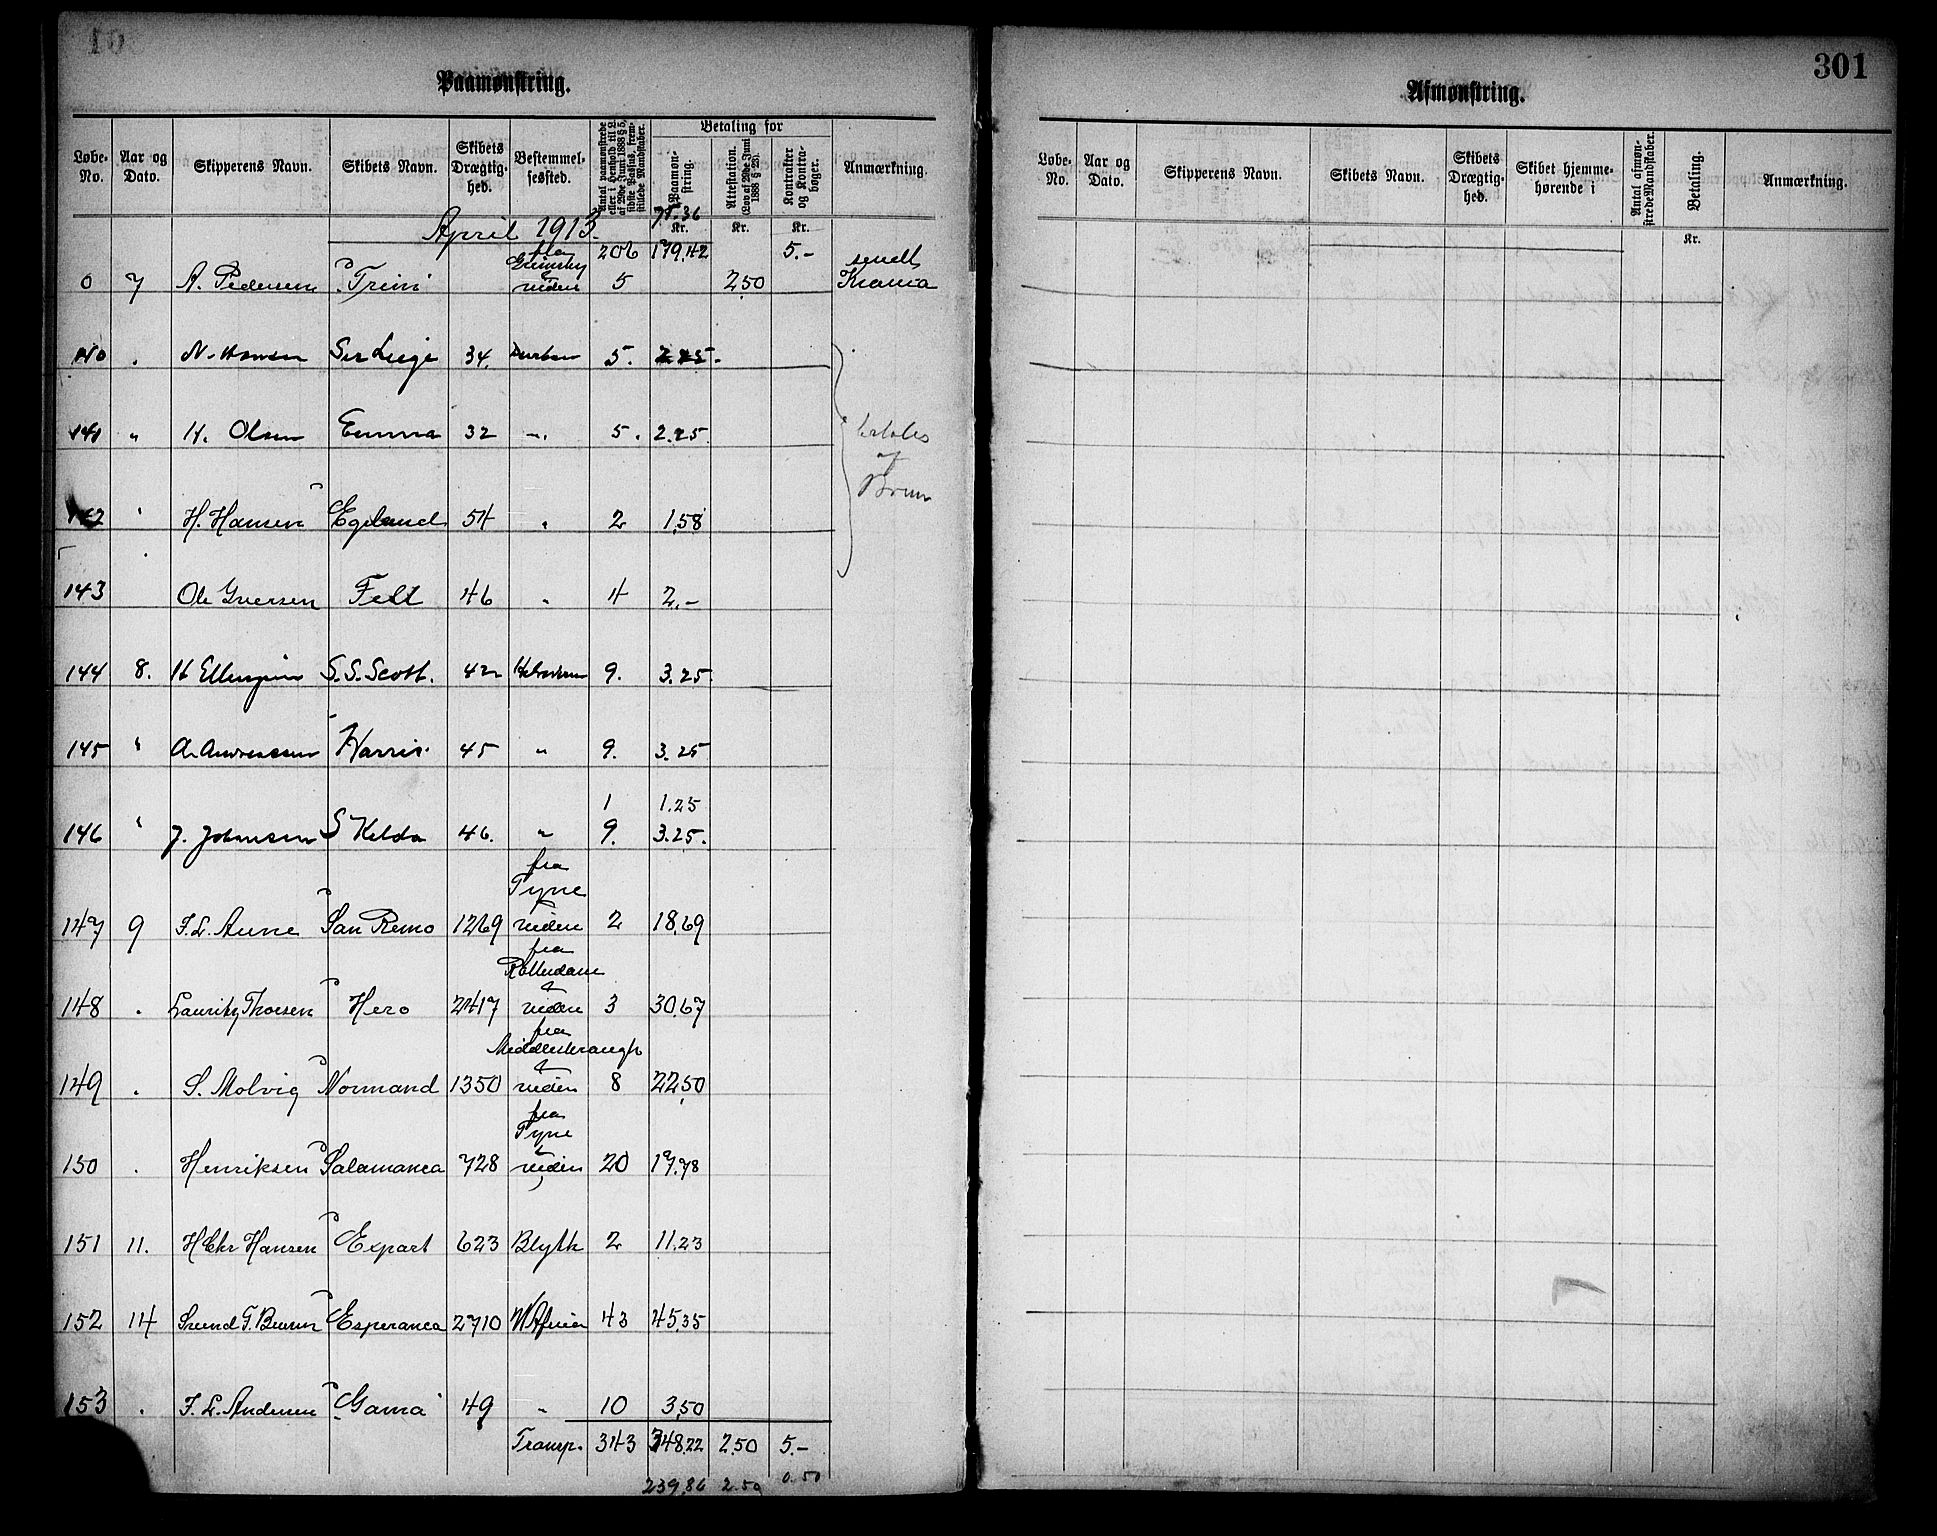 Paamønstring.
Løbe-No.	Aar og Dato.	Skipperens Navn.	Skibets Navn.	Skibets Drægtighed.	Bestemmelsessted.	Antal paamønstrede eller i Henhold til L. af 29de Juni 1888 § 5, sidste Passus, fremstillede Mandskaber.	Betaling for	Paamønstring.	Attestation. (Lov af 29de Juni 1888 § 29).	Kontrakter og Kontrabøger.	Anmærkning.
71.36
April 1913.	Kr.	Kr.	Kr.
fra	206	179,42	5.-	sendt
0	7	A. Pedersen	"Trini"	Grimsby & viden	5	2,50	Krania
140	.	N. Hansen	Ser Luige	34.	Durban	5.	2.25.
141	"	H. Olsen	Emma	32	-"-	5.	2.25.	betales
af
Bruun
142	"	H. Hansen	Egeland	54	"	2	1,58
143	Ole Iversen	Felt	46	"	4	2,-
144	8.	S. S. Scott.	42	9.	3.25.
145	"	A. Andreassen	Harris.	45	"	9.	3.25
1	1.25
146	"	J. Johansen	S Kelda	46.	"	9.	3.25.
fra
Tyne
147	9	F. L. Aune	San Remo	1269	& viden	2	18,69
fra
Rotterdam
148	.	Lauritz Thorsen	Hero	2417	& viden	3	30,67
fra
Middlesbraugh
149	.	S. Molvig	Normand	1350	& viden	8	22,50
fra
Tyne
150	.	Henriksen	Salamanca	728	& viden	20	17,78
151	11.	H Chr Hansen	Expart	623	Blyth	2	11.23
152	14	Esperanca	2710	W Africa	43	45,35
153	.	F. L. Andersen	"Gama"	49	"	10	3,50
Transp.	343	348,22	2,50	5.-
239,86	2.50	0.50
301
Afmønstring.
Løbe-No.	Aar og Dato.	Skipperens Navn.	Skibets Navn.	Skibets Drægtighed.	Skibet hjemmehørende i	Antal afmønstrede Mandskaber.	Betaling.	Anmærkning.
Kr.